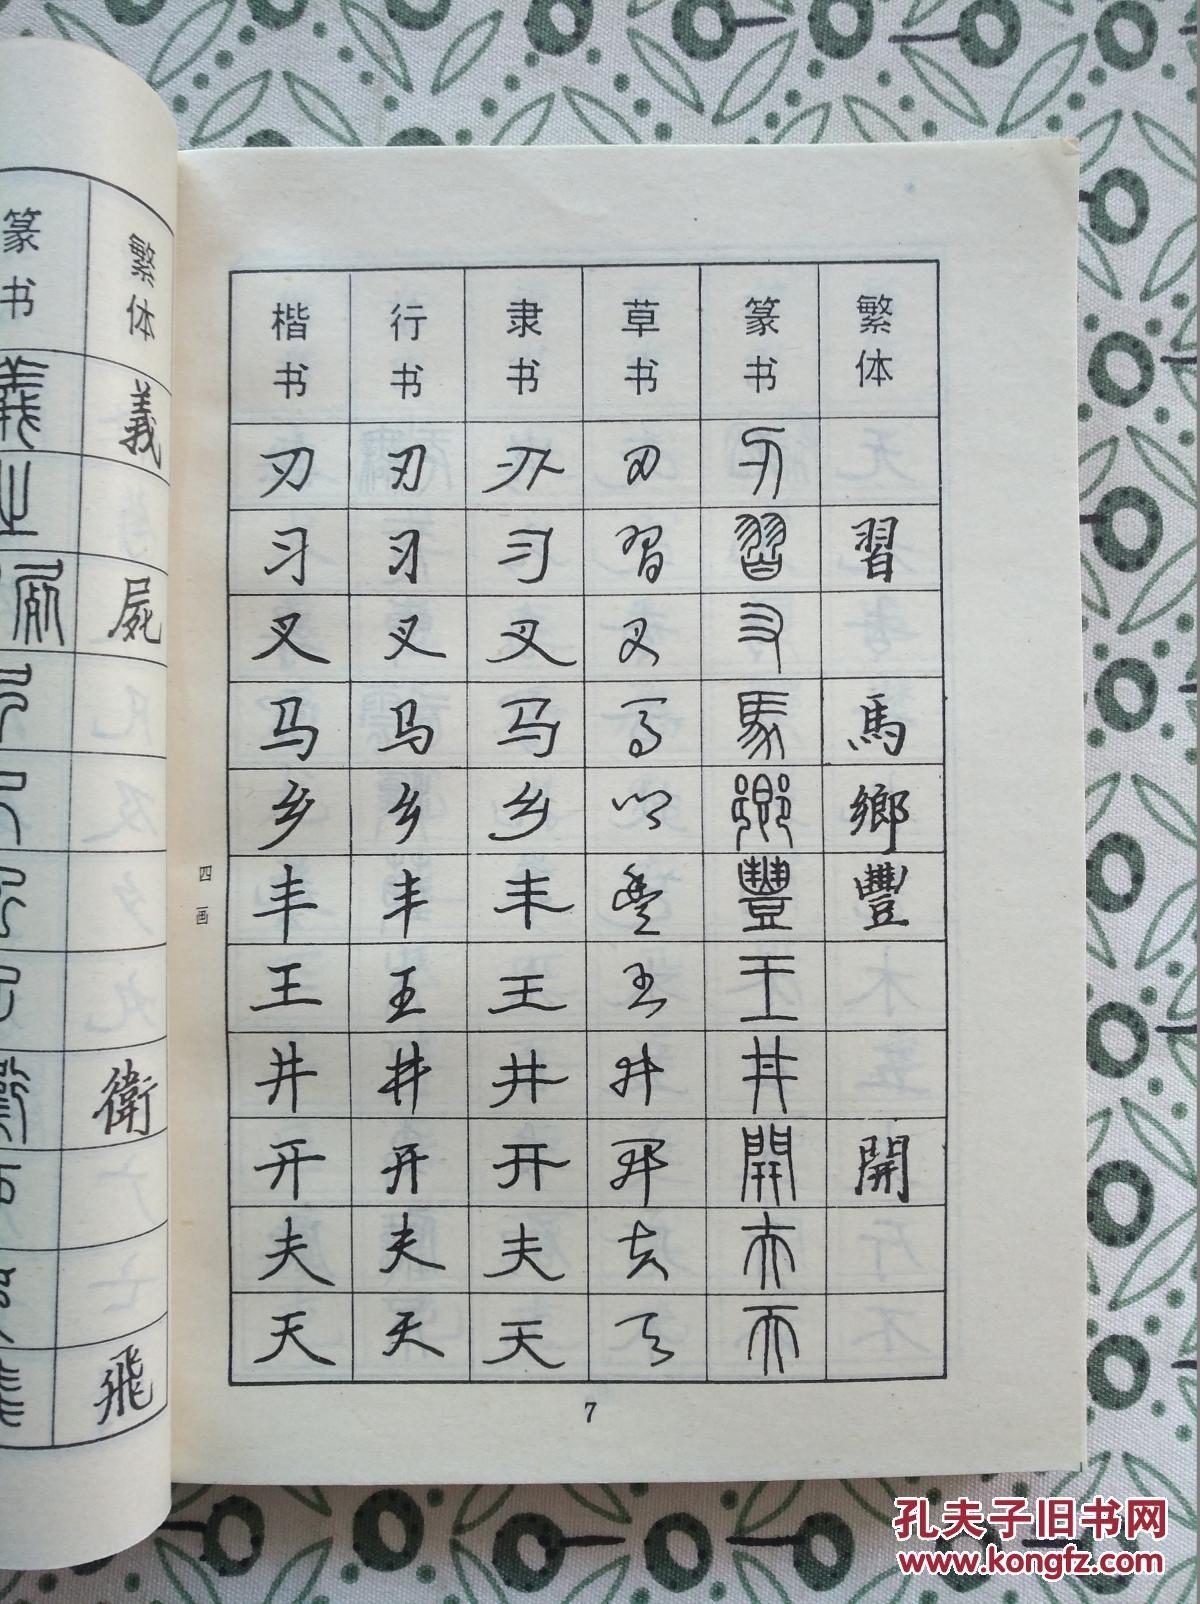 篆书 繁体
義
屍
衛
飛
楷书 行书 隶书 草书 篆书 繁体
刃 刃 刃 刃 刃
习 习 习 習 習 習
叉 叉 叉 叉 叉
马 马 马 马 馬 馬
乡 乡 乡 乡 鄉 鄉
四画
丰 丰 丰 豐 豐 豐
王 王 王 王 王
井 井 井 井 井
开 开 开 开 開 開
夫 夫 夫 夫 夫
天 天 天 天 天
7
孔夫子旧书网
www.kongfz.com